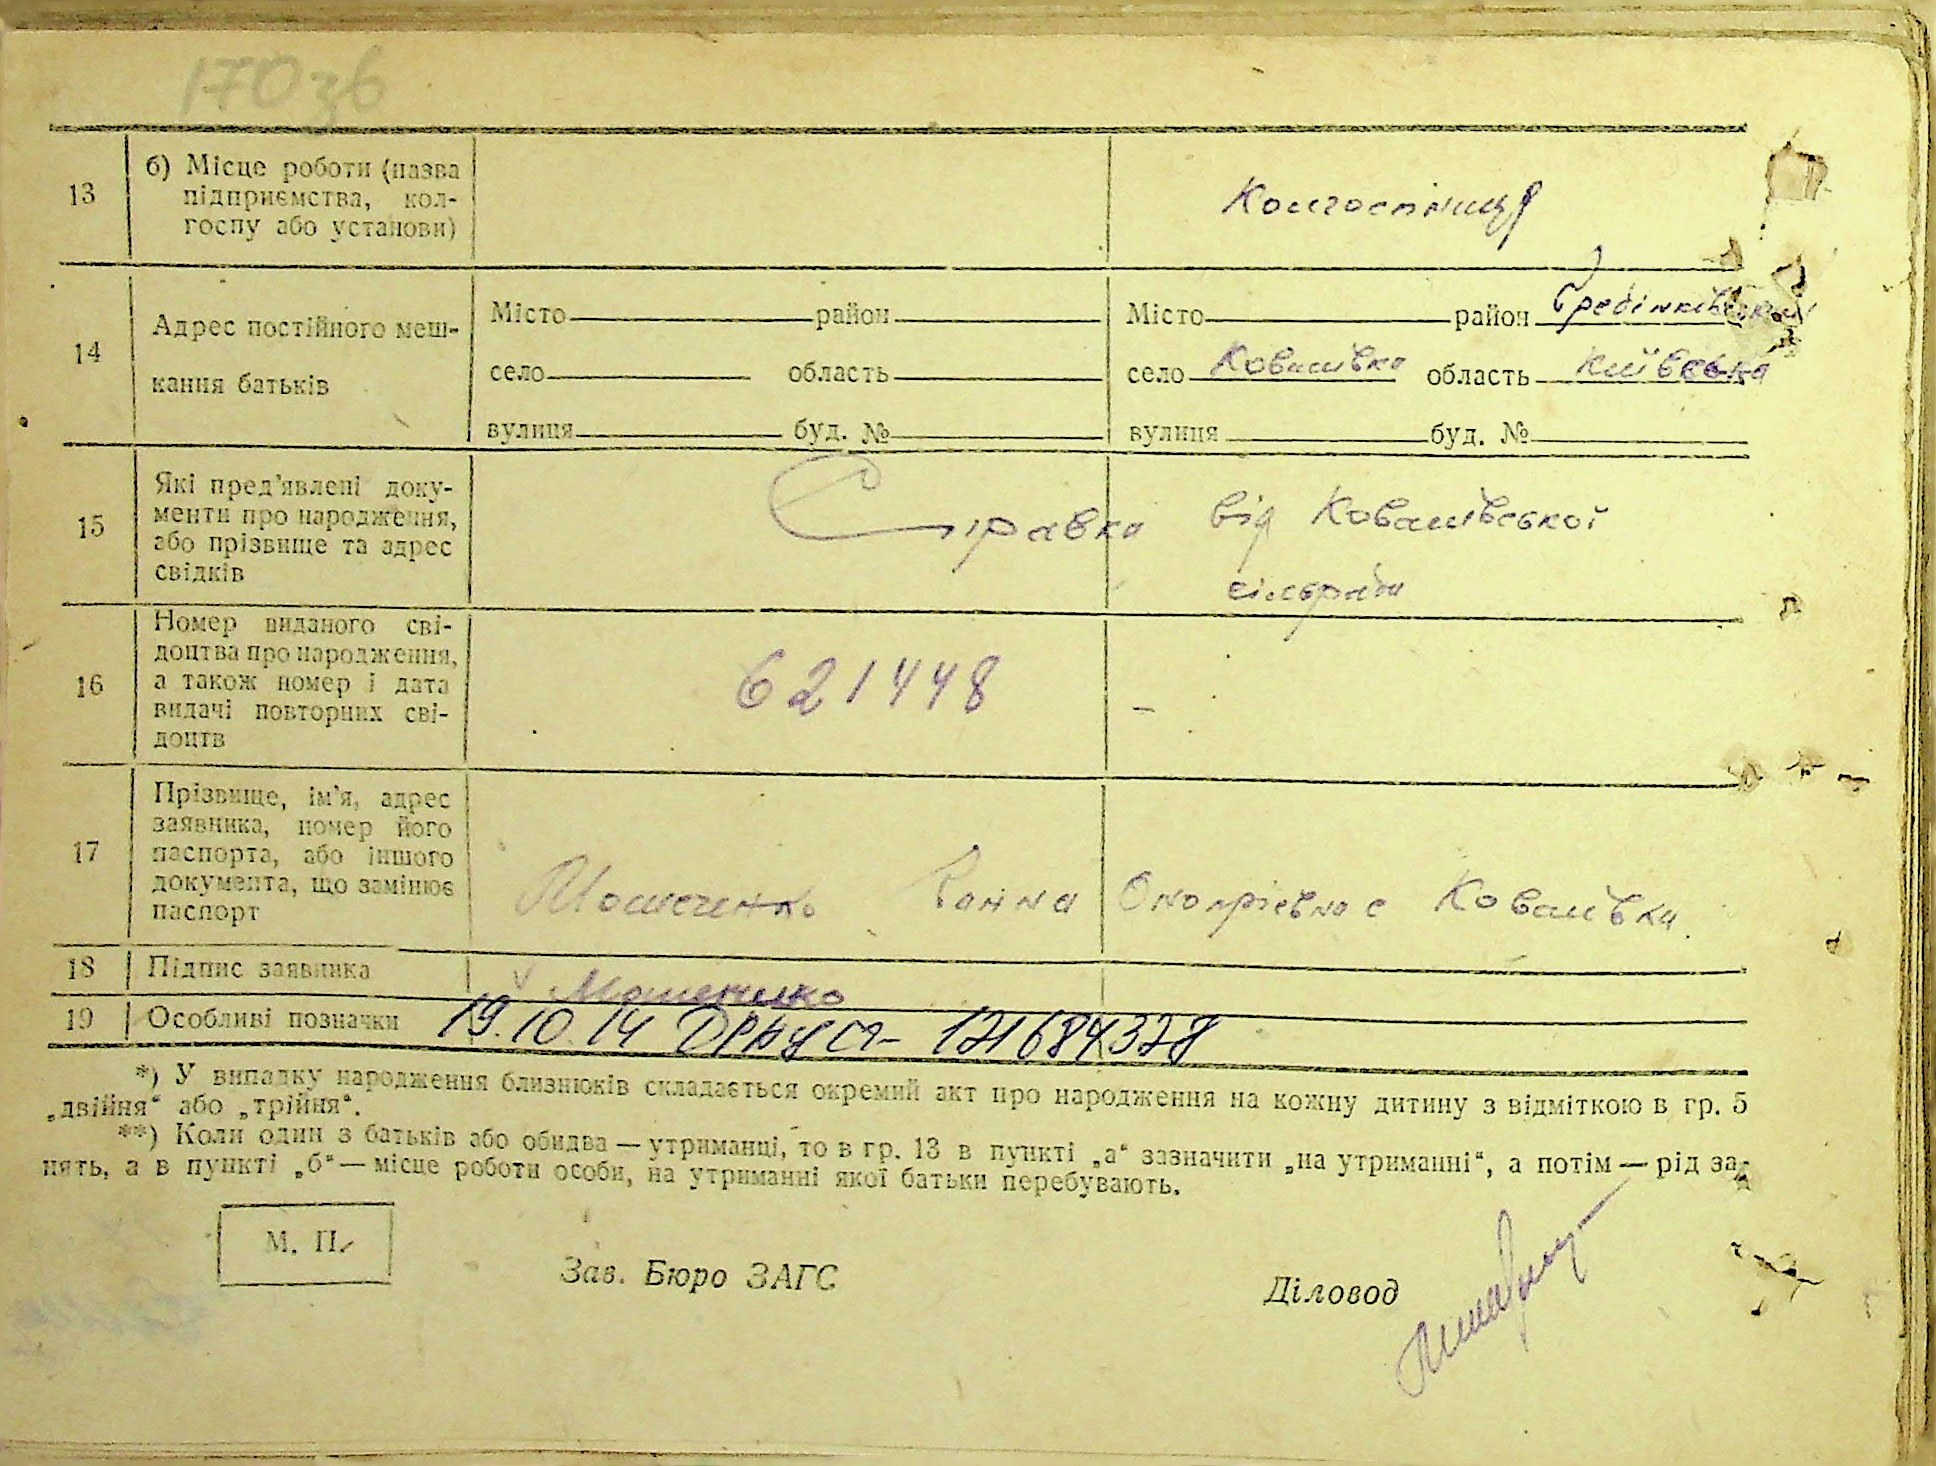 170зв
13 б) Місце роботи (назва
підприємства, кол-
госпу або установи)
Колгоспниця
14 Адрес постійного меш-
кання батьків
Місто район Місто район Гребінківський
село область село Ковалівка область Київська
вулиця буд. № вулиця буд. №
15 Які пред’явлені доку-
менти про народження,
або прізвище та адрес
свідків
Справка від Ковалівської
сільради
16 Номер виданого сві-
доцтва про народження,
а також номер і дата
видачі повторних сві-
доцтв
621448 –
17 Прізвище, ім’я, адрес
заявника, номер його
паспорта, або іншого
документа, що замінює
паспорт
Ганна Онопріевна с Ковалівка.
18 Підпис заявника
19 Особливі позначки 19.10.14 121684328
*) У випадку народження близнюків складається окремий акт про народження на кожну дитину з відміткою в гр. 5
„двійня“ або „трійня“.
**) Коли один з батьків або обидва — утриманці, то в гр. 13 в пункті „а“ зазначити „на утриманні“, а потім — рід за-
нять, а в пункті „б“ — місце роботи особи, на утриманні якої батьки перебувають.
М. П.
Зав. Бюро ЗАГС Діловод